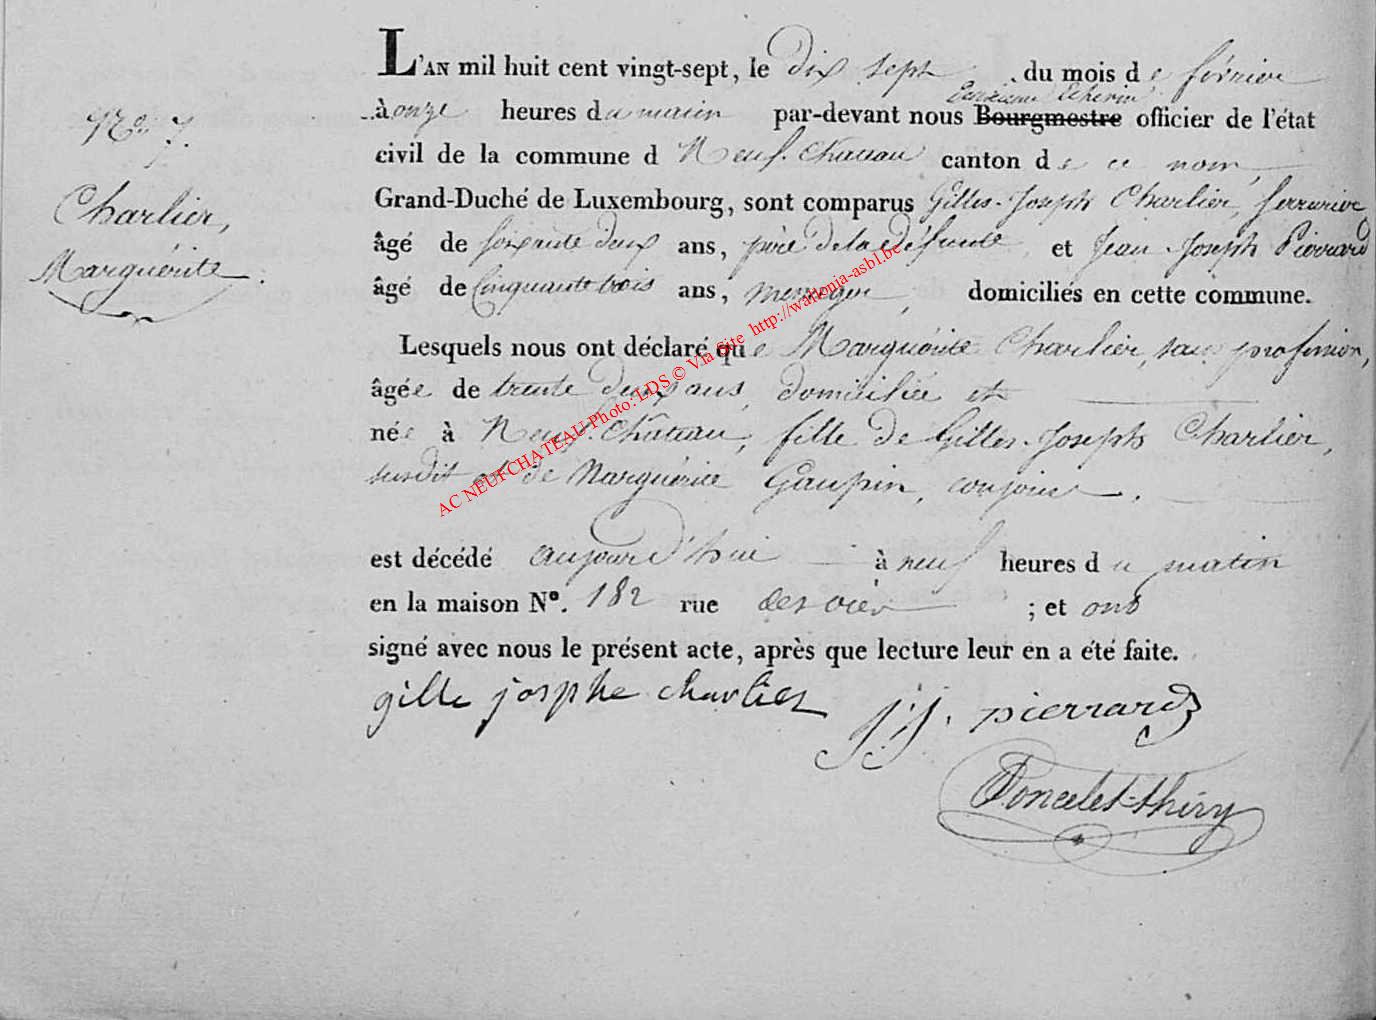 L'AN mil huit cent vingt-sept, le dix sept du mois de février
N.o 7.
à onze heures du matin par-devant nous Bourgmestre Echevin officier de l'état
civil de la commune d Neuf-Chateau canton de ce nom,
Charlier,
Marguérite
Grand-Duché de Luxembourg, sont comparus Gilles-Joseph Charlier, serrurier
âgé de soixante deux ans, père de la défunte et Jean-Joseph Pierrard
âgé de Cinquante trois ans, domiciliés en cette commune.
Lesquels nous ont déclaré que Marguérite Charlier, sans profession,
âgée de trente deux ans, domiciliée et
née à Neuf-Chateau, fille de Gilles-Joseph Charlier,
susdit et de Marguérite Gaupin, conjoints.
est décédé aujourd'hui à neuf heures du matin
en la maison No. 182 rue ; et ont
signé avec nous le présent acte, après que lecture leur en a été faite.
gille josphe charlier J.J. pierrard
Poncelet-thiry
AC NEUFCHATEAU Photo: LDS © Via Site http://wallonia-asbl.be